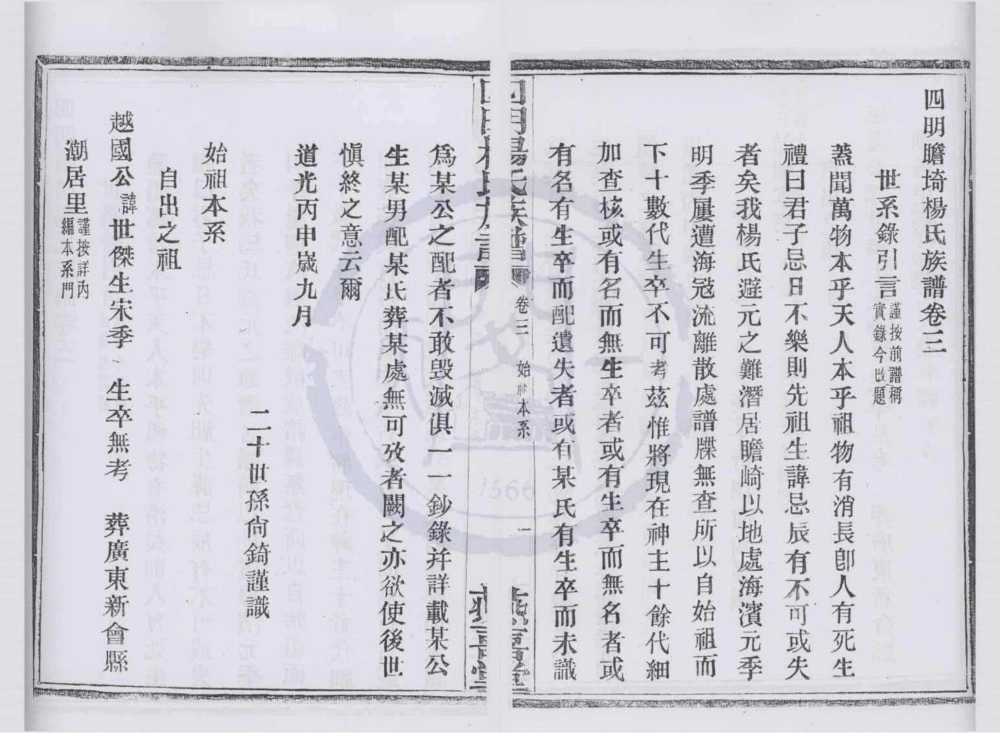 四明瞻埼楊氏族譜卷三
世系錄引言謹按前譜稱實錄今改題
蓋聞萬物本乎天人本乎祖物有消長卽人有死生
禮曰君子忌日不樂則先祖生諱忌辰有不可或失
者矣我楊氏避元之難潛居瞻崎以地處海濱元季
明季屢遭海冦流離散處譜牒無查所以自始祖而
下十數代生卒不可考茲惟將現在神主十餘代細
加查核或有名而無生卒者或有生卒而無名者或
有名有生卒而配遺失者或有某氏有生卒而未識
四明楊氏族譜
卷三
始祖本系
一
爲某公之配者不敢毀滅俱一一鈔錄并詳載某公
生某男配某氏葬某處無可攷者闕之亦欲使後世
愼終之意云爾
道光丙申歲九月
二十世孫尙錡謹識
始祖本系
自出之祖
越國公諱世傑生宋季 生卒無考 葬廣東新會縣
潮居里謹按詳內編本系門
1666